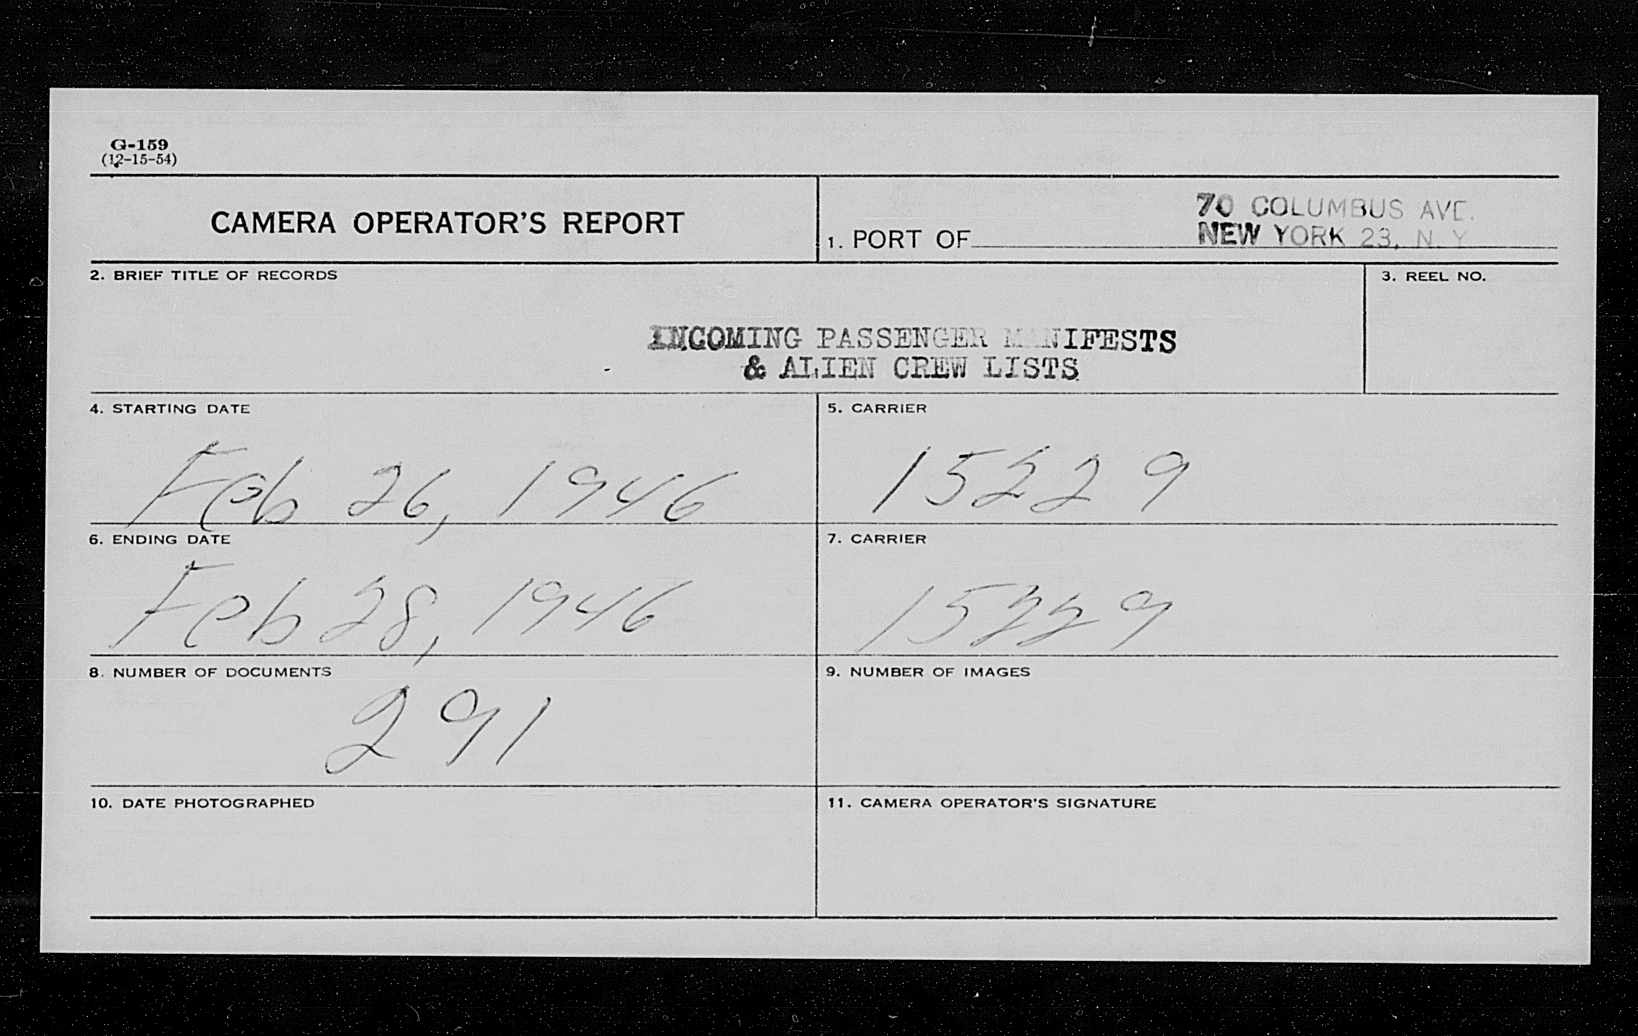 G-159
(12-15-54)
CAMERA OPERATOR'S REPORT
1. PORT OF
70 COLUMBUS AVE.
NEW YORK 23, N. Y.
2. BRIEF TITLE OF RECORDS
3. REEL NO.
INCOMING PASSENGER MANIFESTS
& ALIEN CREW LISTS
4. STARTING DATE
5. CARRIER
Feb 26, 1946
15229
6. ENDING DATE
7. CARRIER
Feb 28, 1946
15229
8. NUMBER OF DOCUMENTS
9. NUMBER OF IMAGES
291
10. DATE PHOTOGRAPHED
11. CAMERA OPERATOR'S SIGNATURE